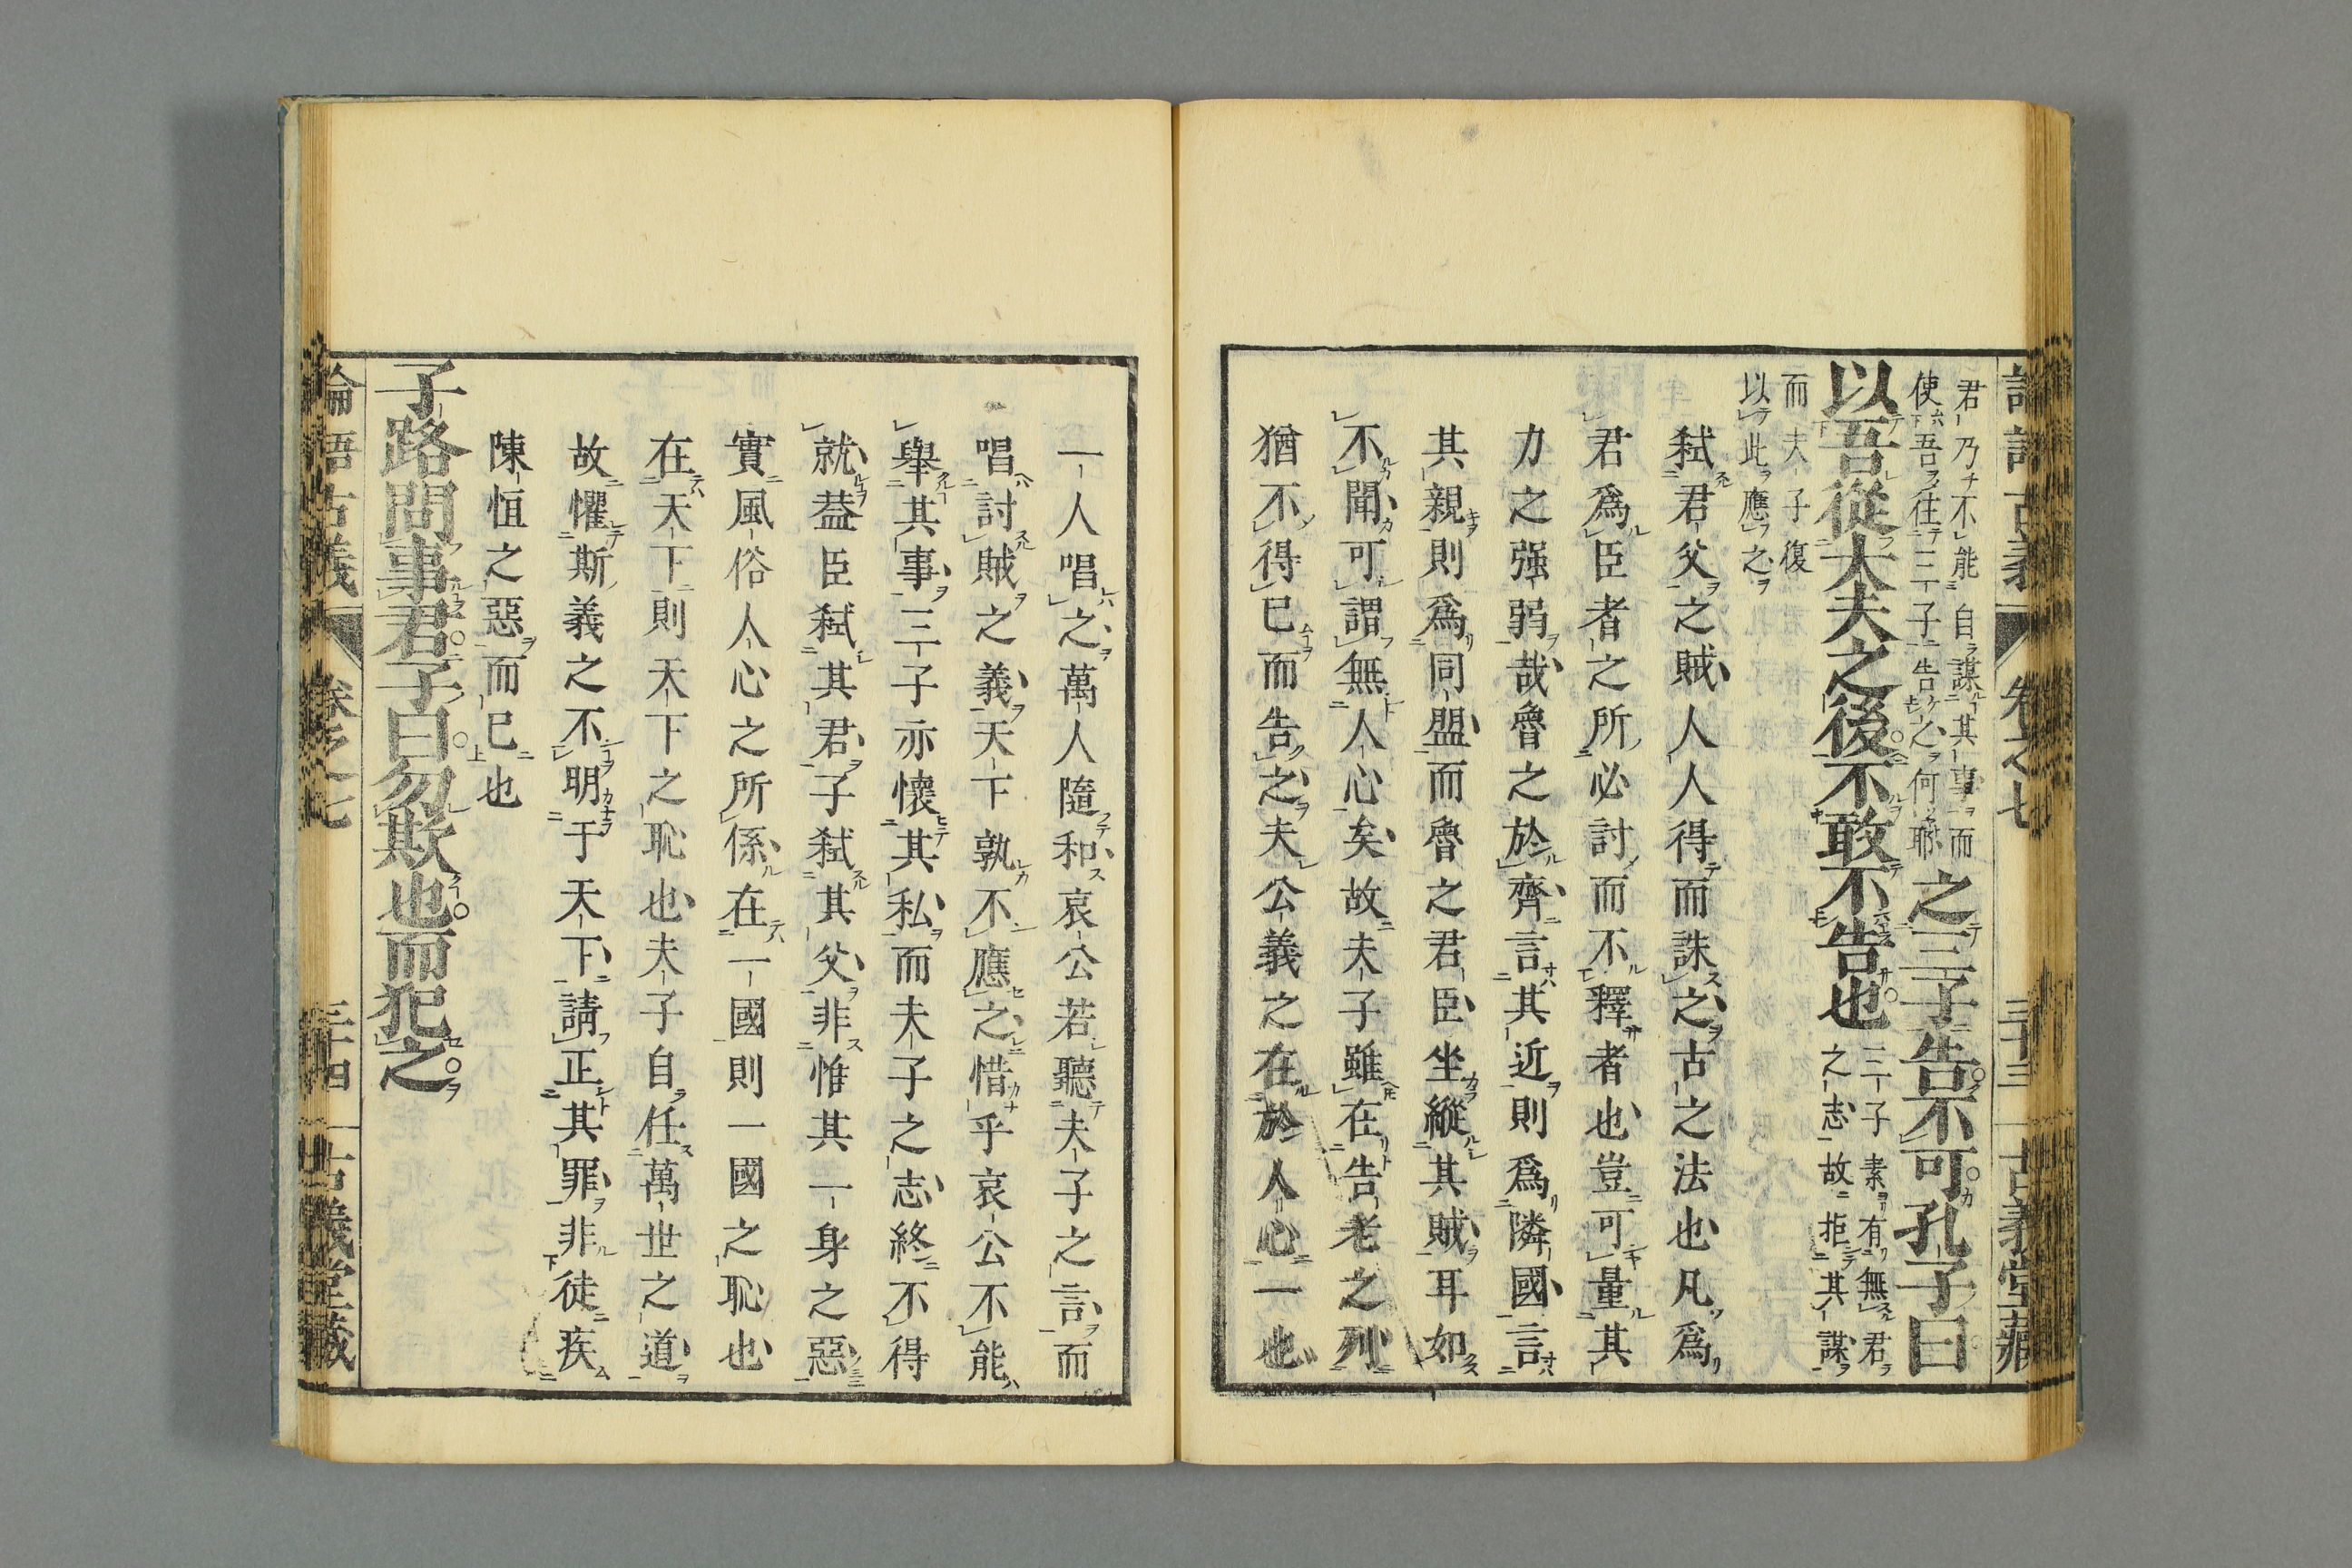 君乃不能自謀其事而
使吾往三子告之何耶
之三子告不可孔子曰
以吾從大夫之後不敢不告也
三子素有無君
之志故拒其謀
而夫子復
以此應之
弑君父之賊人人得而誅之古之法也凡爲
君爲臣者之所必討而不釋者也豈可量其
力之强弱哉魯之於齊言其近則爲隣國言
其親則爲同盟而魯之君臣坐縱其賊耳如
不聞可謂無人心矣故夫子雖在告老之列
猶不得已而告之夫公義之在於人心一也
一人唱之萬人隨和哀公若聽夫子之言而
唱討賊之義天下孰不應之惜乎哀公不能
舉其事三子亦懷其私而夫子之志終不得
就葢臣弑其君子弑其父非惟其一身之惡
實風俗人心之所係在一國則一國之恥也
在天下則天下之恥也夫子自任萬世之道
故懼斯義之不明于天下請正其罪非徒疾
陳恒之惡而已也
子路問事君子曰勿欺也而犯之
論語古義 卷之七 三十四 古義堂藏